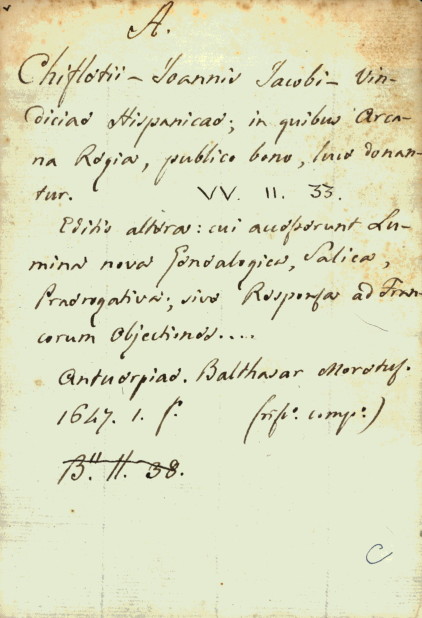 A.
Chifletii - Joannis Jacobi - Vin-
diciae Hispanicae; in quibus Arca-
na Regia, publico bono, luce donan-
tur. VV. II. 33.
Editio altera: cui accesserunt Lu-
mina nova Genealogica, Salica,
Praerogativa; sive Responsa ad Fran-
corum Objectiones....
Antuerpiae. Balthasar Moretus.
1647. 1. f.
B. II. 38.
C